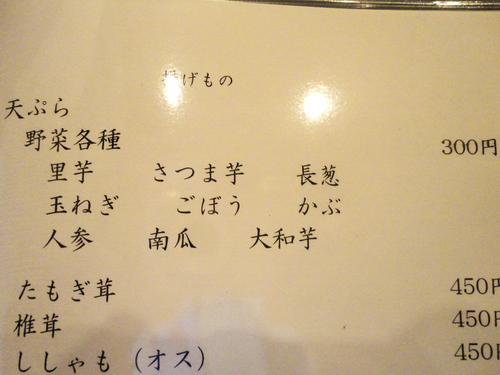 揚げもの
天ぷら
野菜各種 300円
里芋 さつま芋 長葱
玉ねぎ ごぼう かぶ
人参 南瓜 大和芋
たもぎ茸 450円
椎茸 450円
ししゃも（オス） 450円